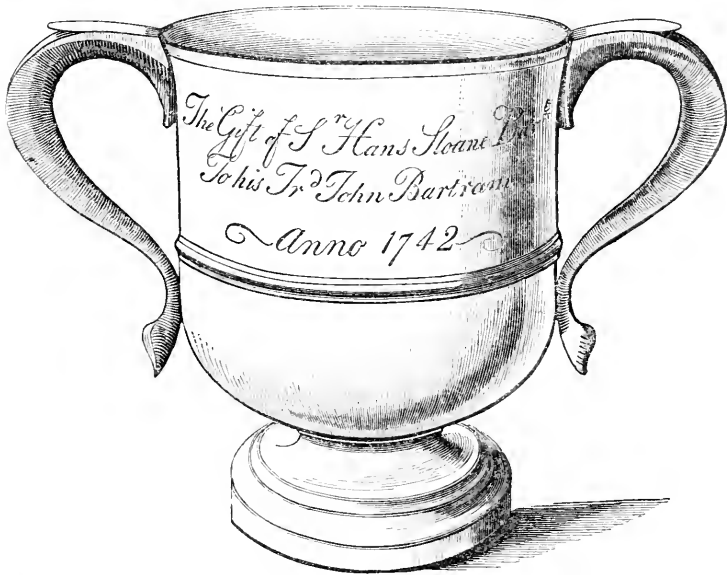 The Gift of Sr Hans Sloane Bart
To his Frd John Bartram
Anno 1742